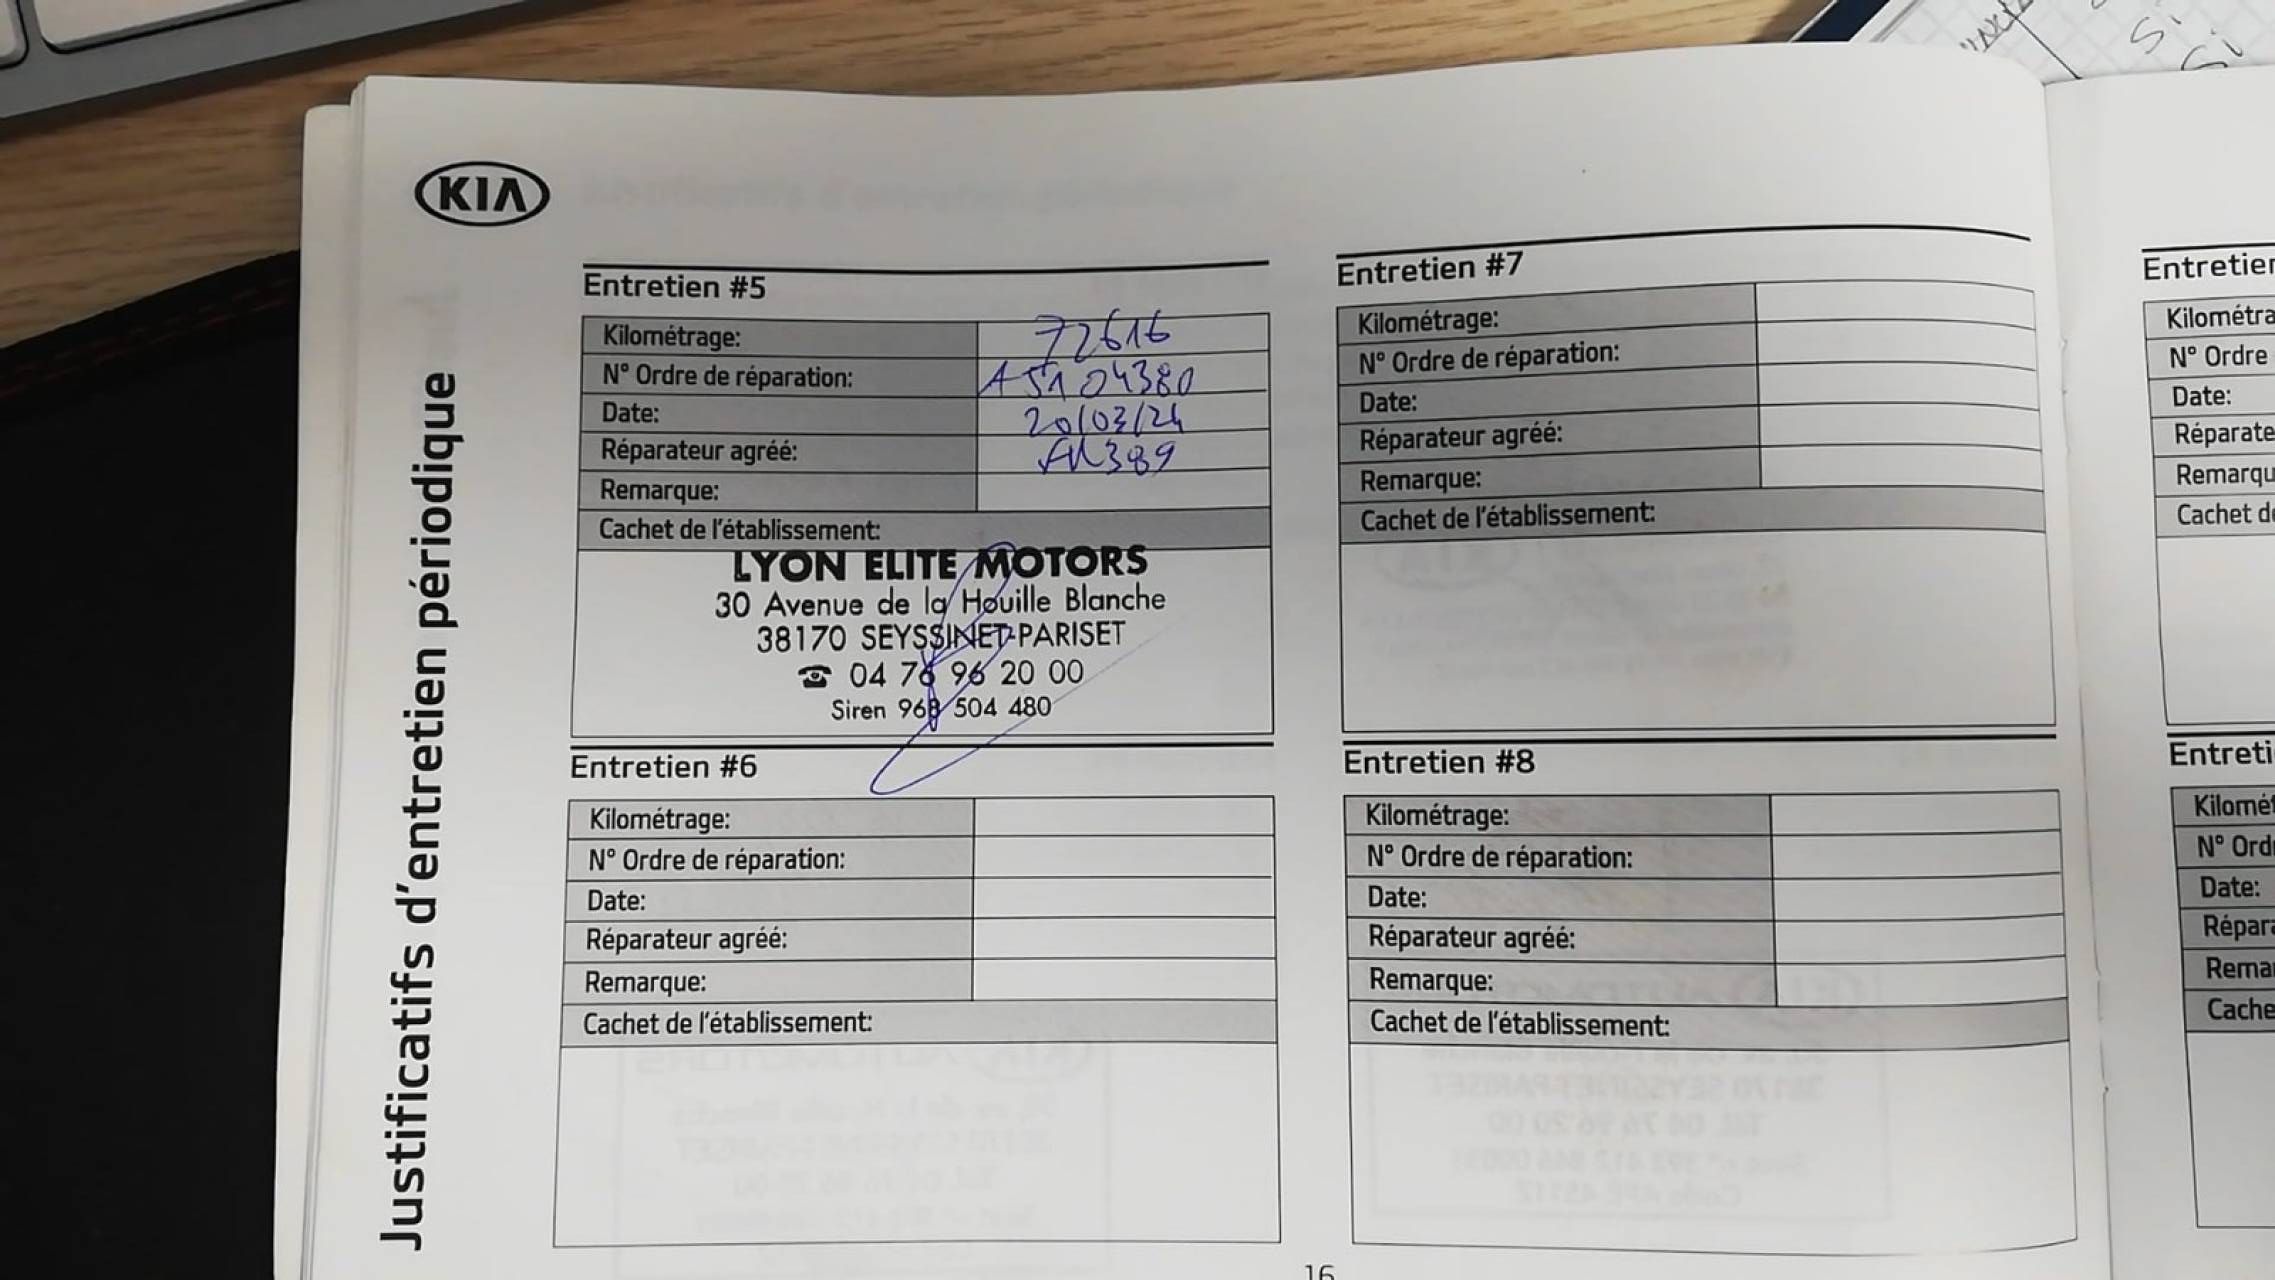 KIA
Justificatifs d'entretien périodique
Entretien #5
Kilométrage: 72616
N° Ordre de réparation: A5104380
Date: 20/03/24
Réparateur agréé: 389
Remarque:
Cachet de l'établissement:
LYON ELITE MOTORS
30 Avenue de la Houille Blanche
38170 SEYSSINET-PARISET
☎ 04 76 96 20 00
Siren 968 504 480
Entretien #6
Kilométrage:
N° Ordre de réparation:
Date:
Réparateur agréé:
Remarque:
Cachet de l'établissement:
Entretien #7
Kilométrage:
N° Ordre de réparation:
Date:
Réparateur agréé:
Remarque:
Cachet de l'établissement:
Entretien #8
Kilométrage:
N° Ordre de réparation:
Date:
Réparateur agréé:
Remarque:
Cachet de l'établissement:
16
Entretien
Kilométra
N° Ordre
Date:
Réparate
Remarqu
Cachet de
Entreti
Kilomét
N° Ord
Date:
Répara
Remar
Cache
Si